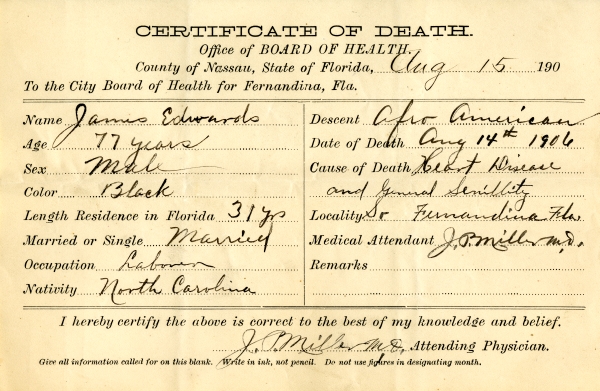 CERTIFICATE OF DEATH.
Office of BOARD OF HEALTH.
County of Nassau, State of Florida, Aug 15 190
To the City Board of Health for Fernandina, Fla.
Name James Edwards
Age 77 years
Sex Male
Color Black
Length Residence in Florida 31 yrs
Married or Single Married
Occupation Laborer
Nativity North Carolina
Descent Afro American
Date of Death Aug 14th 1906
Cause of Death Heart Disease
and General Senillity
Locality So Fernandina Fla
Medical Attendant J.P. Miller M.D.
Remarks
I hereby certify the above is correct to the best of my knowledge and belief.
J. P. Miller M.D. Attending Physician.
Give all information called for on this blank. Write in ink, not pencil. Do not use figures in designating month.